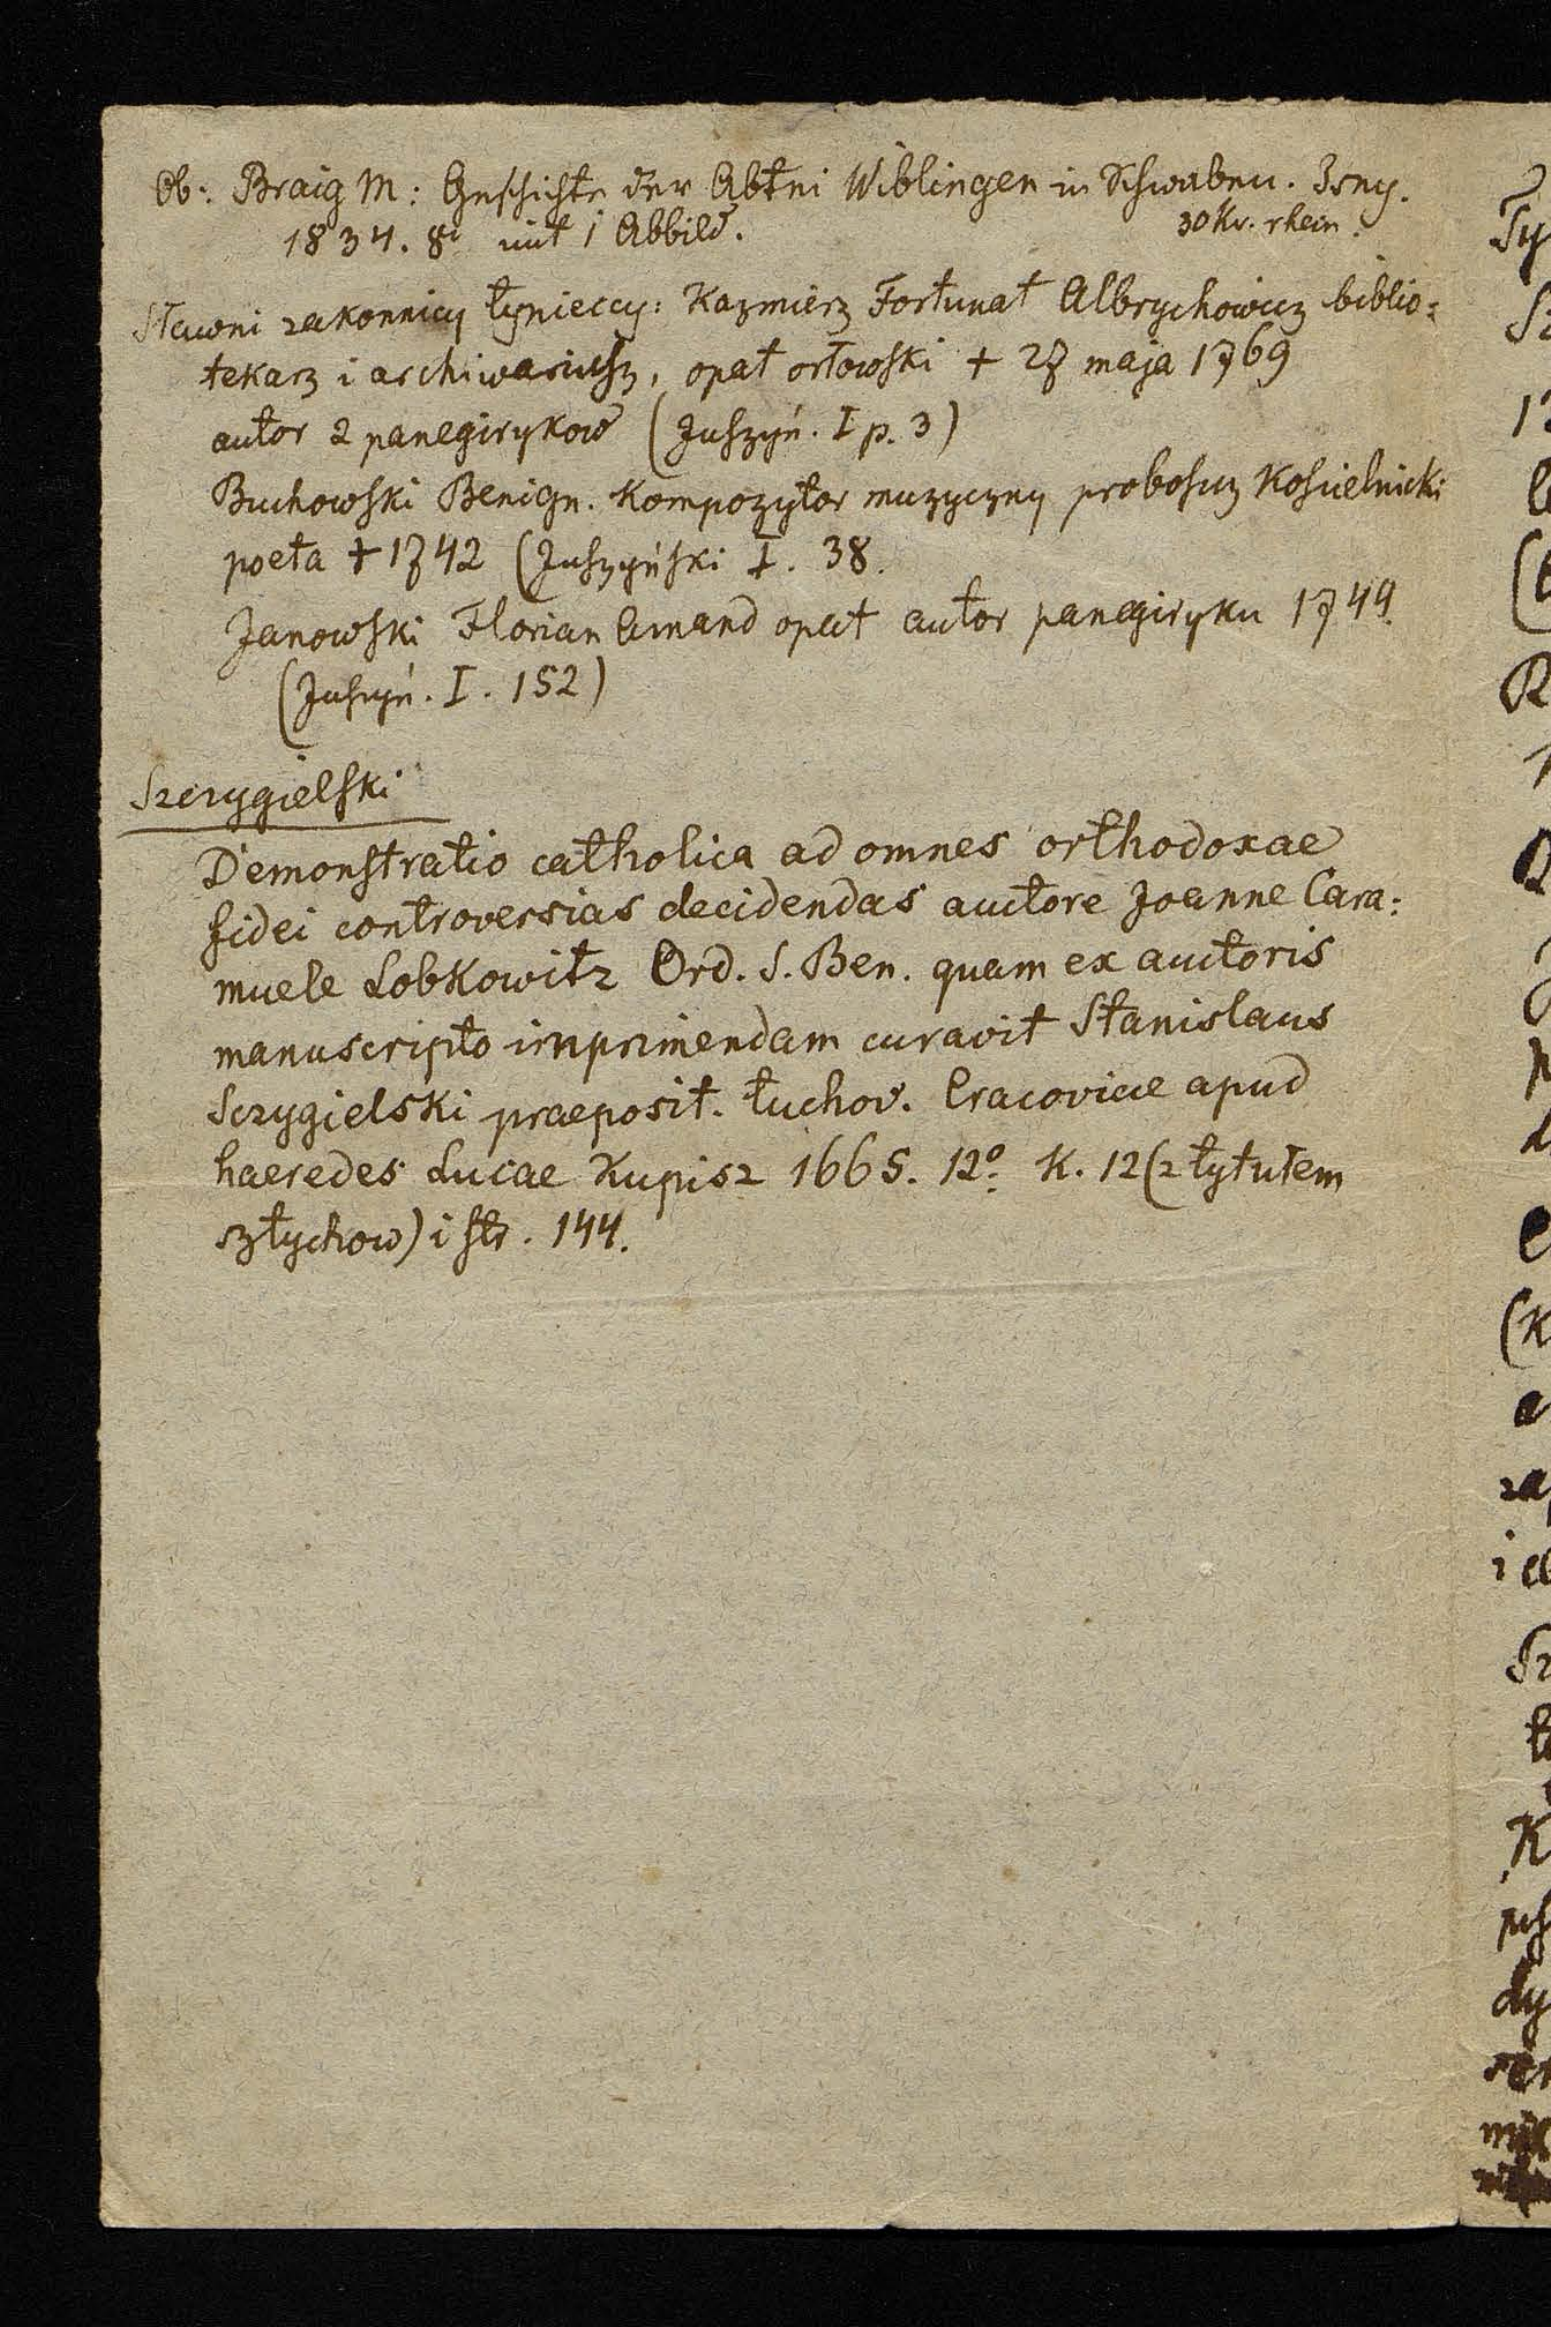 Ob: Braig M: Geschichte der Abtei Wiblingen in Schwaben. Isny.
1834. 8º mit 1 Abbild. 30 Kr. rhein.
Sławni zakonnicy tynieccy: Kazmierz Fortunat Albrychowicz biblio=
tekarz i archiwariusz, opat orłowski + 27 maja 1769
autor 2 panegirykow (Juszyń. I p. 3)
Buchowski Benign. Kompozytor muzyczny proboszcz Koscielnicki
poeta + 1742 (Juszyński I. 38.
Janowski Florian Amand opat autor panegiryku 1749.
(Juszyń. I. 152)
Szczygielski
Demonstratio catholica ad omnes orthodoxae
fidei controversias decidendas auctore Joanne Cara=
muele Lobkowitz Ord. S. Ben. quam ex auctoris
manuscripto imprimendam curavit Stanislaus
Sczygielski praeposit. tuchov. Cracoviae apud
haeredes Lucae Kupisz 1665. 12º K. 12 (z tytułem
sztychow) i str. 144.